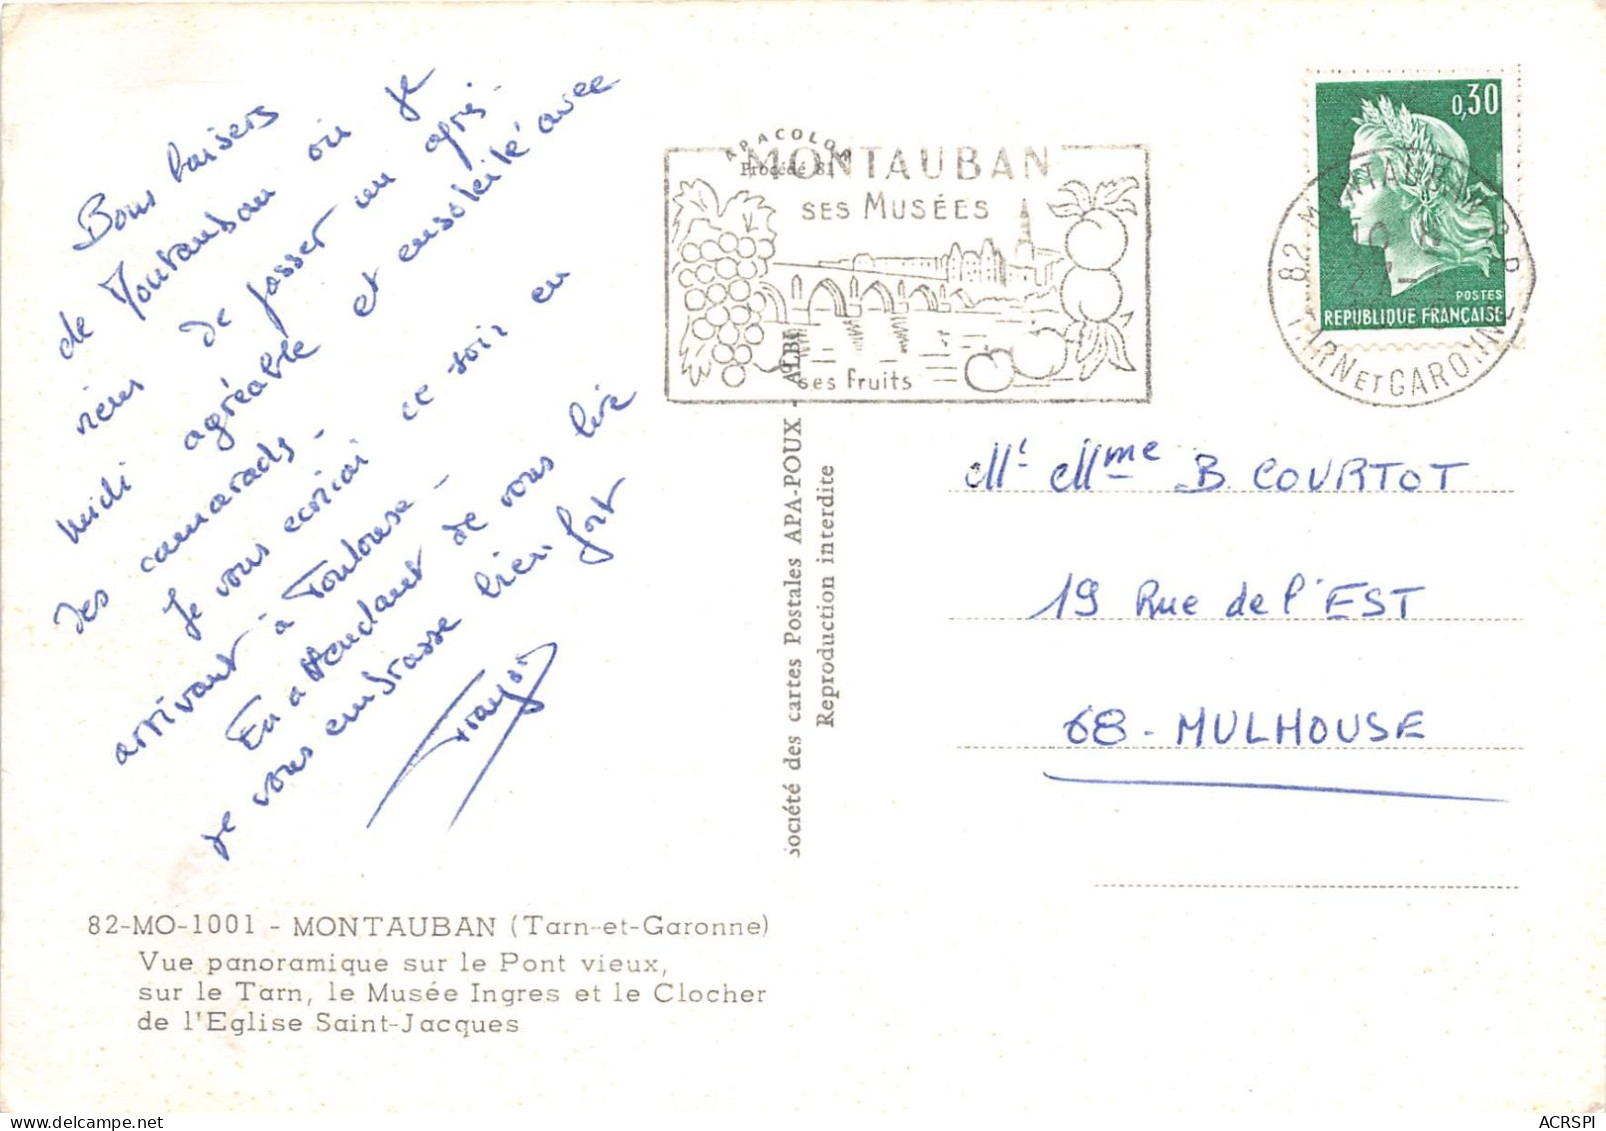 Bons baisers
de Montauban où je
viens de passer un après-
midi agréable et ensoleillé avec
des camarads -
Je vous ecrirai ce soir en
arrivant à Toulouse -
En attendant de vous lire
je vous embrasse bien fort
82-MO-1001 - MONTAUBAN (Tarn-et-Garonne)
Vue panoramique sur le Pont vieux,
sur le Tarn, le Musée Ingres et le Clocher
de l'Eglise Saint-Jacques
APACOLOR
Procédé 81
MONTAUBAN
SES MUSÉES
ses fruits
Société des cartes Postales APA-POUX - ALBI
Reproduction interdite
0,30
POSTES
REPUBLIQUE FRANÇAISE
82 MONTAUBAN R.P.
TARN ET GARONNE
Mr Mme B COURTOT
19 Rue de l'EST
68 - MULHOUSE
ACRSPI